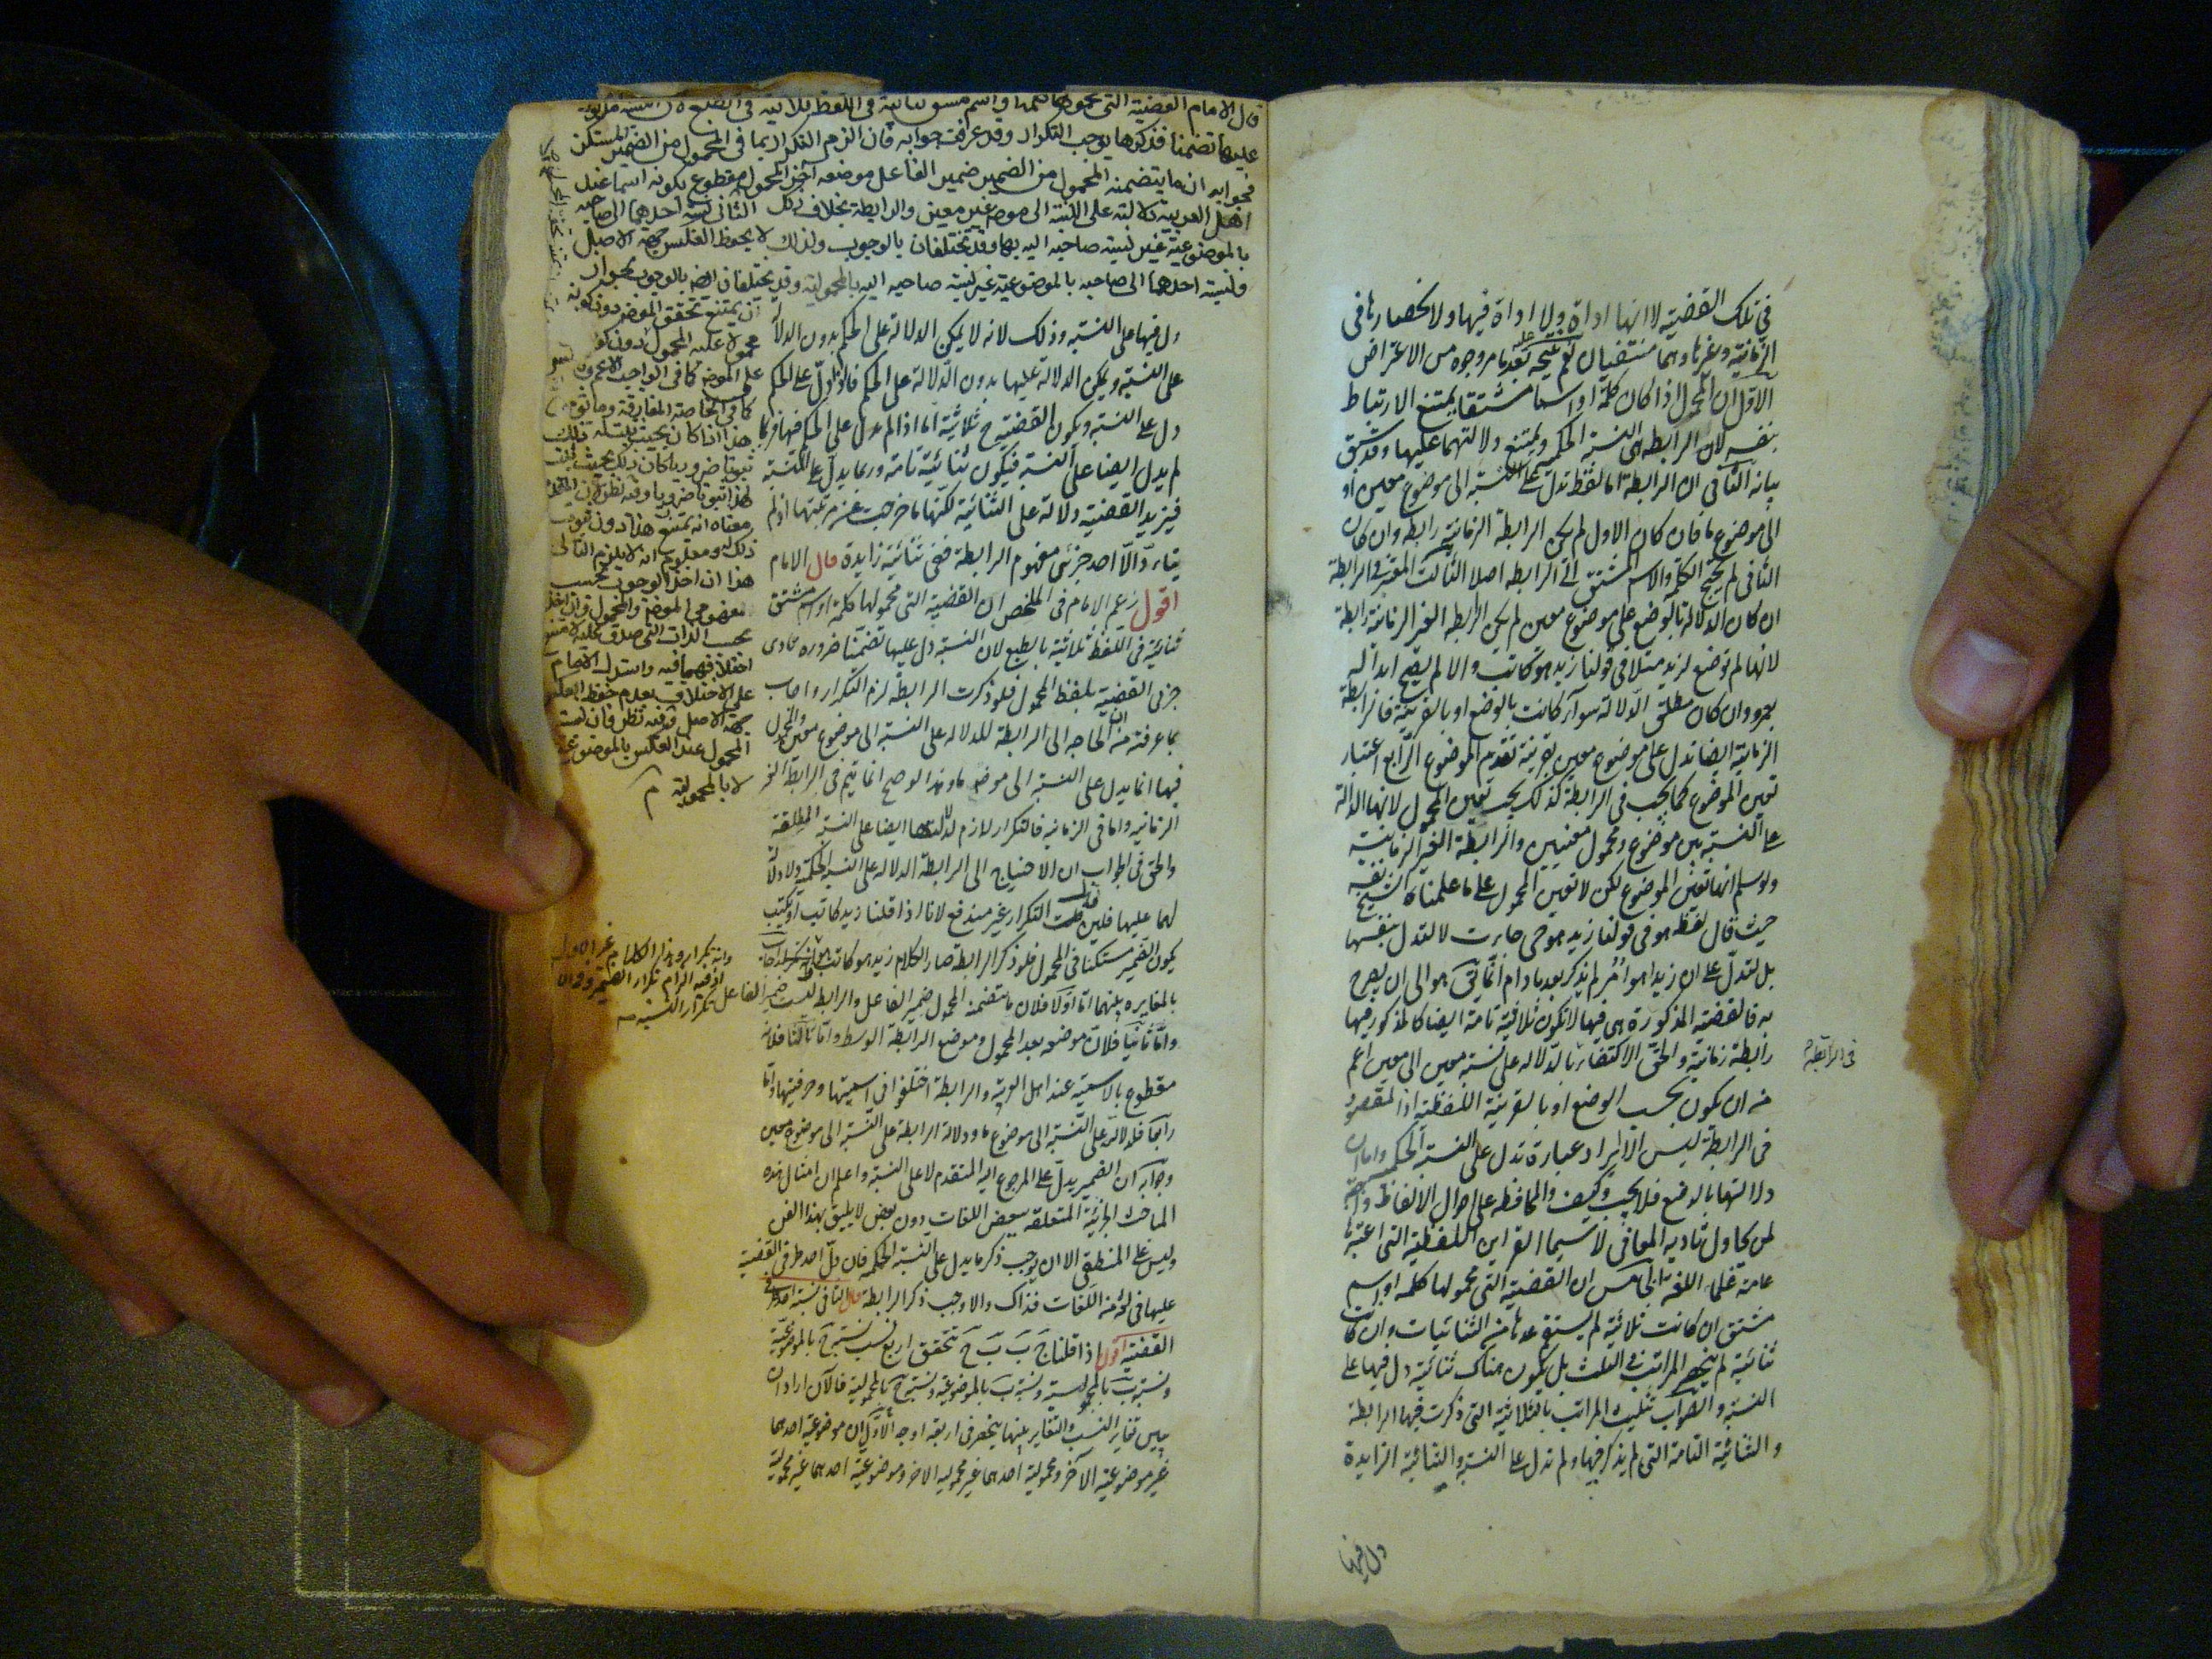 في تلك القضية لا انها اداة ولا اداة فيها ولا انحصارها في
الزمانية وغيرها وهما منتفيان ثم يتجه على بعد ما مر وجوه من الاعتراض
الاول ان المحمول اذا كان كلمة او اسما مشتقا يمتنع الارتباط
بنفسه لان الرابطة هي النسبة الحكمية ويمتنع دلالتهما عليها وقد سبق
بيانه الثاني ان الرابطة اما لفظ تدل على النسبة الى موضوع معين او
الى موضوع ما فان كان الاول لم يكن الرابطة الزمانية رابطة وان كان
الثاني لم يحتج الكلمة والاسم المشتق الى الرابطة اصلا الثالث المعتبر في الرابطة
ان كان الدلالة بالوضع على موضوع معين لم يكن الرابطة الغير الزمانية رابطة
لانها لم توضع لزيد مثلا في قولنا زيد هو كاتب والا لم يصح ابداله
بعمرو وان كان مطلق الدلالة سواء كانت بالوضع او بالقرينة فالرابطة
الزمانية ايضا تدل على موضوع معين بقرينة تقدم الموضوع الرابع اعتبار
تعين الموضوع كما يجب في الرابطة كذلك يجب تعين المحمول لانها الدالة
على النسبة بين موضوع ومحمول معينين والرابطة الغير الزمانية
ولو سلم انها تعين الموضوع لكن لا تعين المحمول على ما علمناه الشيخ نفسه
حيث قال لفظة هو في قولنا زيد هو حي جاءت لا لتدل بنفسها
بل لتدل على ان زيدا هو امر لم يذكر بعد ما دام انما يقال هو الى ان يصرح
به فالقضية المذكورة هي فيها لا تكون ثلاثية تامة ايضا كالمذكور فيها
رابطة زمانية والحق الاكتفاء بالدلالة على نسبة معين الى معين اعم
في الرابطة
من ان يكون بحسب الوضع او بالقرينة اللفظية اذ المقصود
في الرابطة ليس الا ايراد عبارة تدل على النسبة الحكمية واما ان
دلالتها بالوضع فلا يجب وكيف والمحافظة على احوال الالفاظ واجبة
لمن يحاول تادية المعاني لا سيما القراين اللفظية التي اعتبرها
عامة علماء اللغة الخامس ان القضية التي محمولها كلمة او اسم
مشتق ان كانت ثلاثية لم يستقم عدها من الثنائيات وان كانت
ثنائية لم ينحصر المراتب في الثلث بل يكون هناك ثنائية دل فيها على
النسبة والصواب تثليث المراتب بالثلاثية التي ذكرت فيها الرابطة
والثنائية التامة التي لم يذكر فيها ولم تدل على النسبة والثنائية الزايدة
دل فيها
عليها تضمنا فذكرها يوجب التكرار وقد عرفت جوابه فان الزم التكرار بما في المحمول من الضمير المستكن
فجوابه ان ما يتضمنه المحمول من الضمير ضمير الفاعل موضعه آخر المحمول مقطوع بكونه اسما عند
اهل العربية دلالته على النسبة الى موضوع غير معين والرابطة بخلاف ذلك الثاني نسبة احدهما الى صاحبه
بالموضوعية غير نسبة صاحبه اليه بها وقد تختلفان بالوجوب ولذلك لا يحفظ العكس جهة الاصل
ونسبة احدهما الى صاحبه بالموضوعية غير نسبة صاحبه اليه بالمحمولية وقد يختلفان ايضا بالوجوب بجواز
ان يمتنع تحقق الموضوع دون كونه
دل فيها على النسبة وذلك لانه لا يمكن الدلالة على الحكم بدون الدلالة
على النسبة ويمكن الدلالة عليها بدون الدلالة على الحكم فاذا دل على الحكم
دل على النسبة ويكون القضية ح ثلاثية اما اذا لم يدل على الحكم فيها فربما
لم يدل ايضا على النسبة فيكون ثنائية تامة وربما يدل على النسبة
فيزيد القضية دلالة على الثنائية لكنها ما خرجت عن مرتبتها اذ لم
يتاد الا احد جزئي مفهوم الرابطة فهي ثنائية زايدة قال الامام
اقول زعم الامام في الملخص ان القضية التي محمولها كلمة او اسم مشتق
ثنائية في اللفظ ثلاثية بالطبع لان النسبة دل عليها تضمنا ضرورة تادي
جزئي القضية بلفظ المحمول فلو ذكرت الرابطة لزم التكرار واجاب
بما عرفته من ان الحاجة الى الرابطة للدلالة على النسبة الى موضوع معين والمحمول
فيها انما يدل على النسبة الى موضوع ما وهذا الوضح انما يتم في الرابطة الغير
الزمانية واما في الزمانية فالتكرار لازم لدلالتها ايضا على النسبة المطلقة
والحق في الجواب ان الاحتياج الى الرابطة الدلالة على النسبة الحكمية ولا دلالة
لهما عليها فلئن قلت التكرار غير مندفع لانا اذا قلنا زيد كاتب او يكتب
يكون الضمير مستكنا في المحمول فلو ذكر الرابطة صار الكلام زيد هو كاتب هو
بالمغايرة بينهما اما اولا فلان ما يتضمنه المحمول ضمير الفاعل والرابطة ليست ضمير الفاعل
واما ثانيا فلان موضعه بعد المحمول وموضع الرابطة الوسط واما ثالثا فلانه
مقطوع بالاسمية عند اهل العربية والرابطة اختلفوا في اسميتها وحرفيتها واما
رابعا فلدلالته على النسبة الى موضوع ما ودلالة الرابطة على النسبة الى موضوع معين
وجوابه ان الضمير يدل على المرجوع اليه المتقدم لا على النسبة واعلم ان امثال هذه
المباحث الجزئية المتعلقة ببعض اللغات دون بعض لا يليق بهذا الفن
وليس على المنطقي الا ان يوجب ذكر ما يدل على النسبة الحكمية فان دل احد طرفي القضية
عليها في لغة من اللغات فذاك والا وجب ذكر الرابطة قال الثاني نسبة احد طرفي
القضية اقول اذا قلنا ج ب ب ج تتحقق اربع نسب نسبة ج بالموضوعية
ونسبة ب بالمحمولية ونسبة ب بالموضوعية ونسبة ج بالمحمولية فالآن اراد ان
يبين تغاير النسب والتغاير بينها ينحصر في اربعة اوجه الاول ان موضوعية احدهما
غير موضوعية الآخر ومحمولية احدهما غير محمولية الاخر وموضوعية احدهما غير محمولية
هذا ان اخذ الوجوب بحسب
مفهومي الموضوع والمحمول
واستدل الامام
على الاختلاف بعدم حفظ العكس
جهة الاصل وفيه نظر فان نسبة
المحمول عند العكس بالموضوعية
لا بالمحمولية م